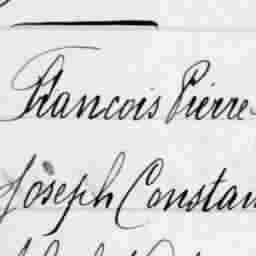 François Pierre
Joseph Constan